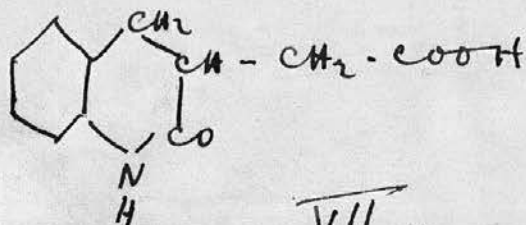 CH₂
CH - CH₂ · COOH
CO
N
H
VII